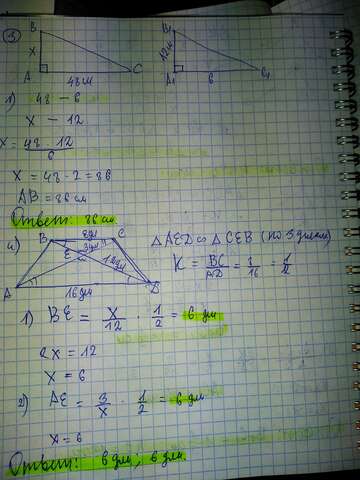 ③
B
B₁
X
12м
A
48м
C
A₁
6
C₁
1) 48 — 6
X — 12
X = 48 12 / 6
X = 48 · 2 = 86
AB = 86 см
Ответ: 86 см
B 8дм C
E 3дм
12дм
A
16дм
D
△ AED ∾ △ CEB (по
K = BC/AD = 8/16 = 1/2
1) BE = X/12 · 1/2 = 6 дм
2x = 12
X = 6
2) AE = 3/X · 1/2 = 6 дм
X = 6
Ответ: 6 дм; 6 дм.